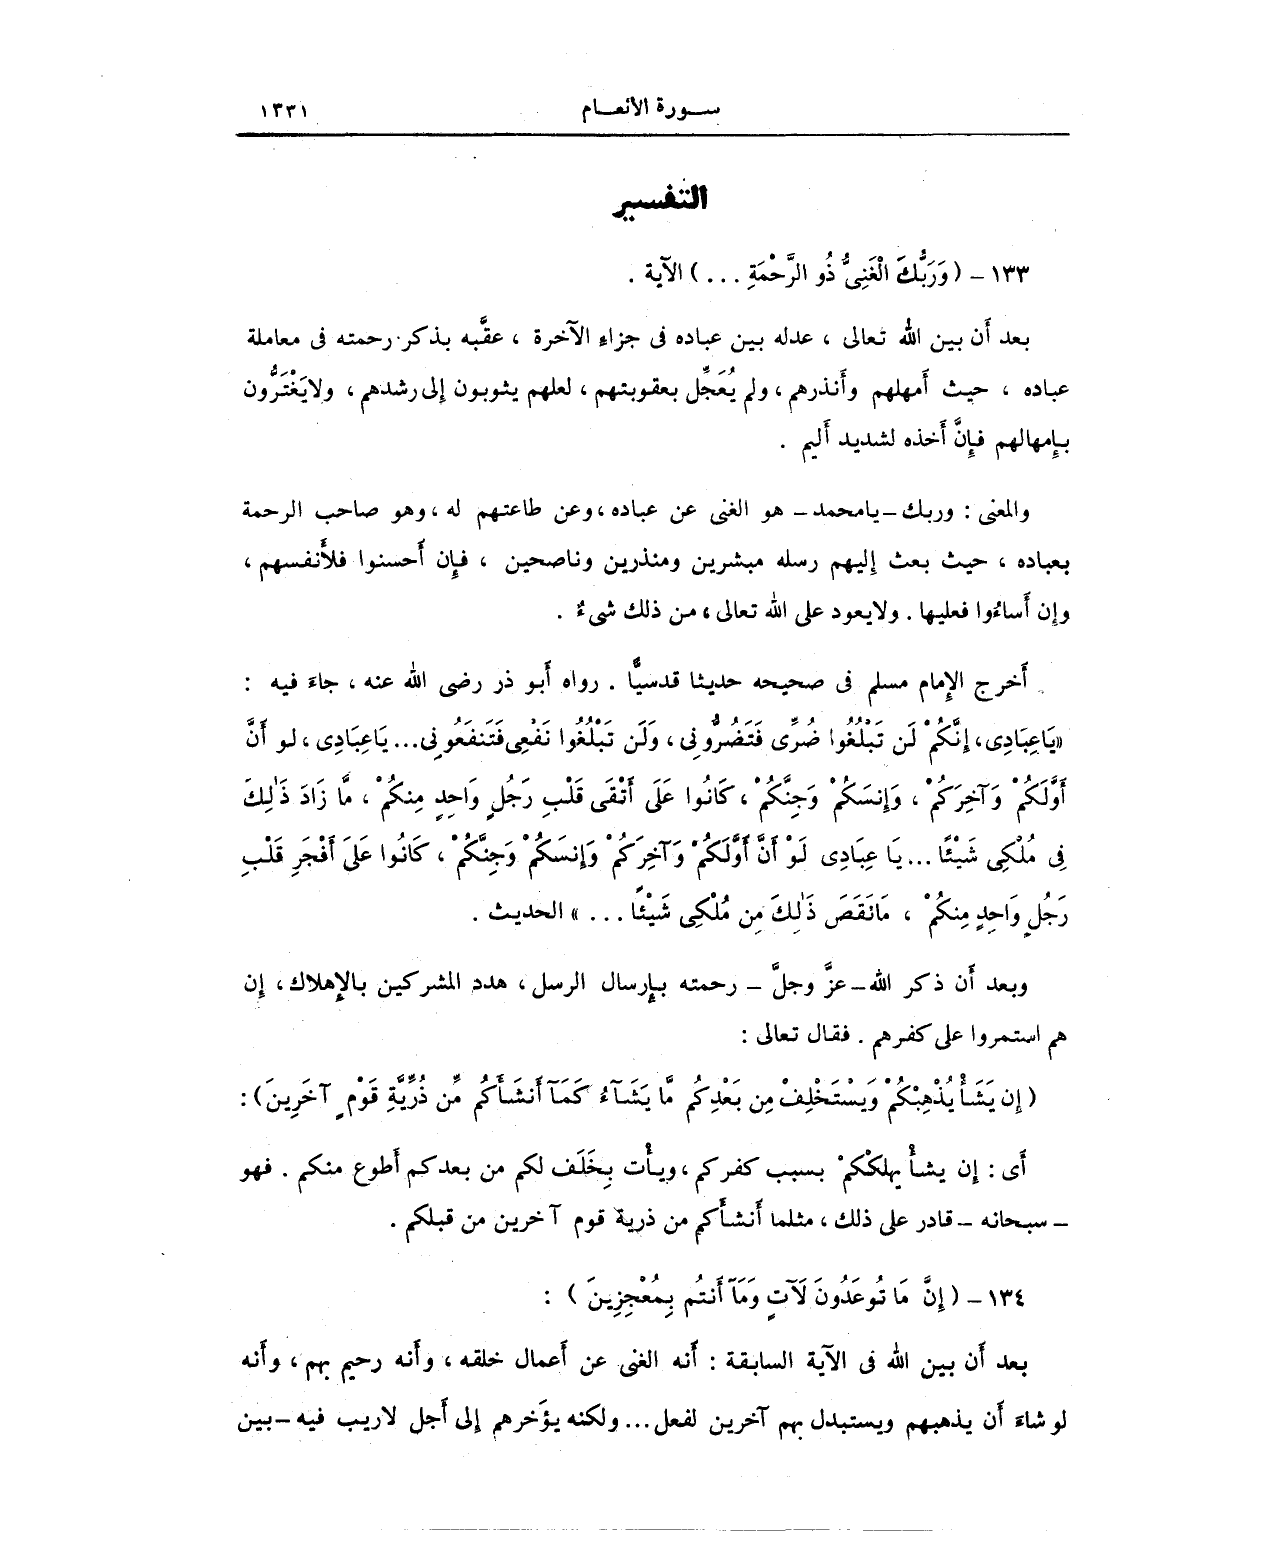 سورة الأنعام ١٣٣١
التفسير
١٣٣ - ( وَرَبُّكَ الْغَنِىُّ ذُو الرَّحْمَةِ ... ) الآية .
بعد أَن بين الله تعالى ، عدله بين عباده فى جزاءِ الآخرة ، عقَّبه بذكر رحمته فى معاملة
عباده ، حيث أَمهلهم وأَنذرهم ، ولم يُعَجِّل بعقوبتهم ، لعلهم يثوبون إلى رشدهم ، ولايَغْتَرُّون
بإِمهالهم فإِنَّ أَخذه لشديد أَليم .
والمعنى : وربك - يامحمد - هو الغنى عن عباده ، وعن طاعتهم له ، وهو صاحب الرحمة
بعباده ، حيث بعث إِليهم رسله مبشرين ومنذرين وناصحين ، فإِن أَحسنوا فلأَنفسهم ،
وإِن أَساءُوا فعليها . ولايعود على الله تعالى ، من ذلك شىءٌ .
أَخرج الإِمام مسلم فى صحيحه حديثا قدسيًّا . رواه أَبو ذر رضى الله عنه ، جاءَ فيه :
« يَاعِبَادِى ، إِنَّكُمْ لَن تَبْلُغُوا ضُرِّى فَتَضُرُّونِى ، وَلَن تَبْلُغُوا نَفْعِى فَتَنفَعُونِى ... يَاعِبَادِى ، لو أَنَّ
أَوَّلَكُمْ وَآخِرَكُمْ ، وَإِنسَكُمْ وَجِنَّكُمْ ، كَانُوا عَلَى أَتْقَى قَلْبِ رَجُلٍ وَاحِدٍ مِنكُمْ ، مَّا زَادَ ذَٰلِكَ
فِى مُلْكِى شَيْئًا ... يَا عِبَادِى لَوْ أَنَّ أَوَّلَكُمْ وَآخِرَكُمْ وَإِنسَكُمْ وَجِنَّكُمْ ، كَانُوا عَلَى أَفْجَرِ قَلْبِ
رَجُلٍ وَاحِدٍ مِنكُمْ ، مَانَقَصَ ذَٰلِكَ مِن مُلْكِى شَيْئًا ... » الحديث .
وبعد أَن ذكر الله - عزَّ وجلَّ - رحمته بإِرسال الرسل ، هدد المشركين بالإِهلاك ، إِن
هم استمروا على كفرهم . فقال تعالى :
( إِن يَشَأْ يُذْهِبْكُمْ وَيَسْتَخْلِفْ مِن بَعْدِكُم مَّا يَشَآءُ كَمَآ أَنشَأَكُم مِّن ذُرِّيَّةِ قَوْمٍ آخَرِينَ ) :
أَى : إِن يشأْ يهلككمْ بسبب كفركم ، ويأْت بِخَلَف لكم من بعدكم أَطوع منكم . فهو
- سبحانه - قادر على ذلك ، مثلما أَنشأَكم من ذرية قوم آخرين من قبلكم .
١٣٤ - ( إِنَّ مَا تُوعَدُونَ لَآتٍ وَمَآ أَنتُم بِمُعْجِزِينَ ) :
بعد أَن بين الله فى الآية السابقة : أَنه الغنى عن أَعمال خلقه ، وأَنه رحيم بهم ، وأَنه
لو شاءَ أَن يذهبهم ويستبدل بهم آخرين لفعل ... ولكنه يؤَخرهم إِلى أَجل لاريب فيه - بين